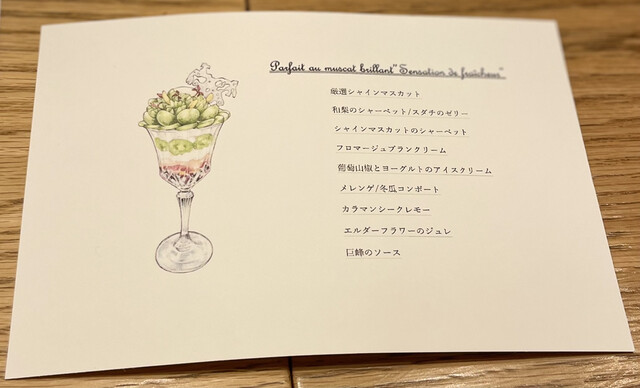 Parfait au muscat brillant "Sensation de fraîcheur"
厳選シャインマスカット
和梨のシャーベット/スダチのゼリー
シャインマスカットのシャーベット
フロマージュブランクリーム
葡萄山椒とヨーグルトのアイスクリーム
メレンゲ/冬瓜コンポート
カラマンシークレモー
エルダーフラワーのジュレ
巨峰のソース